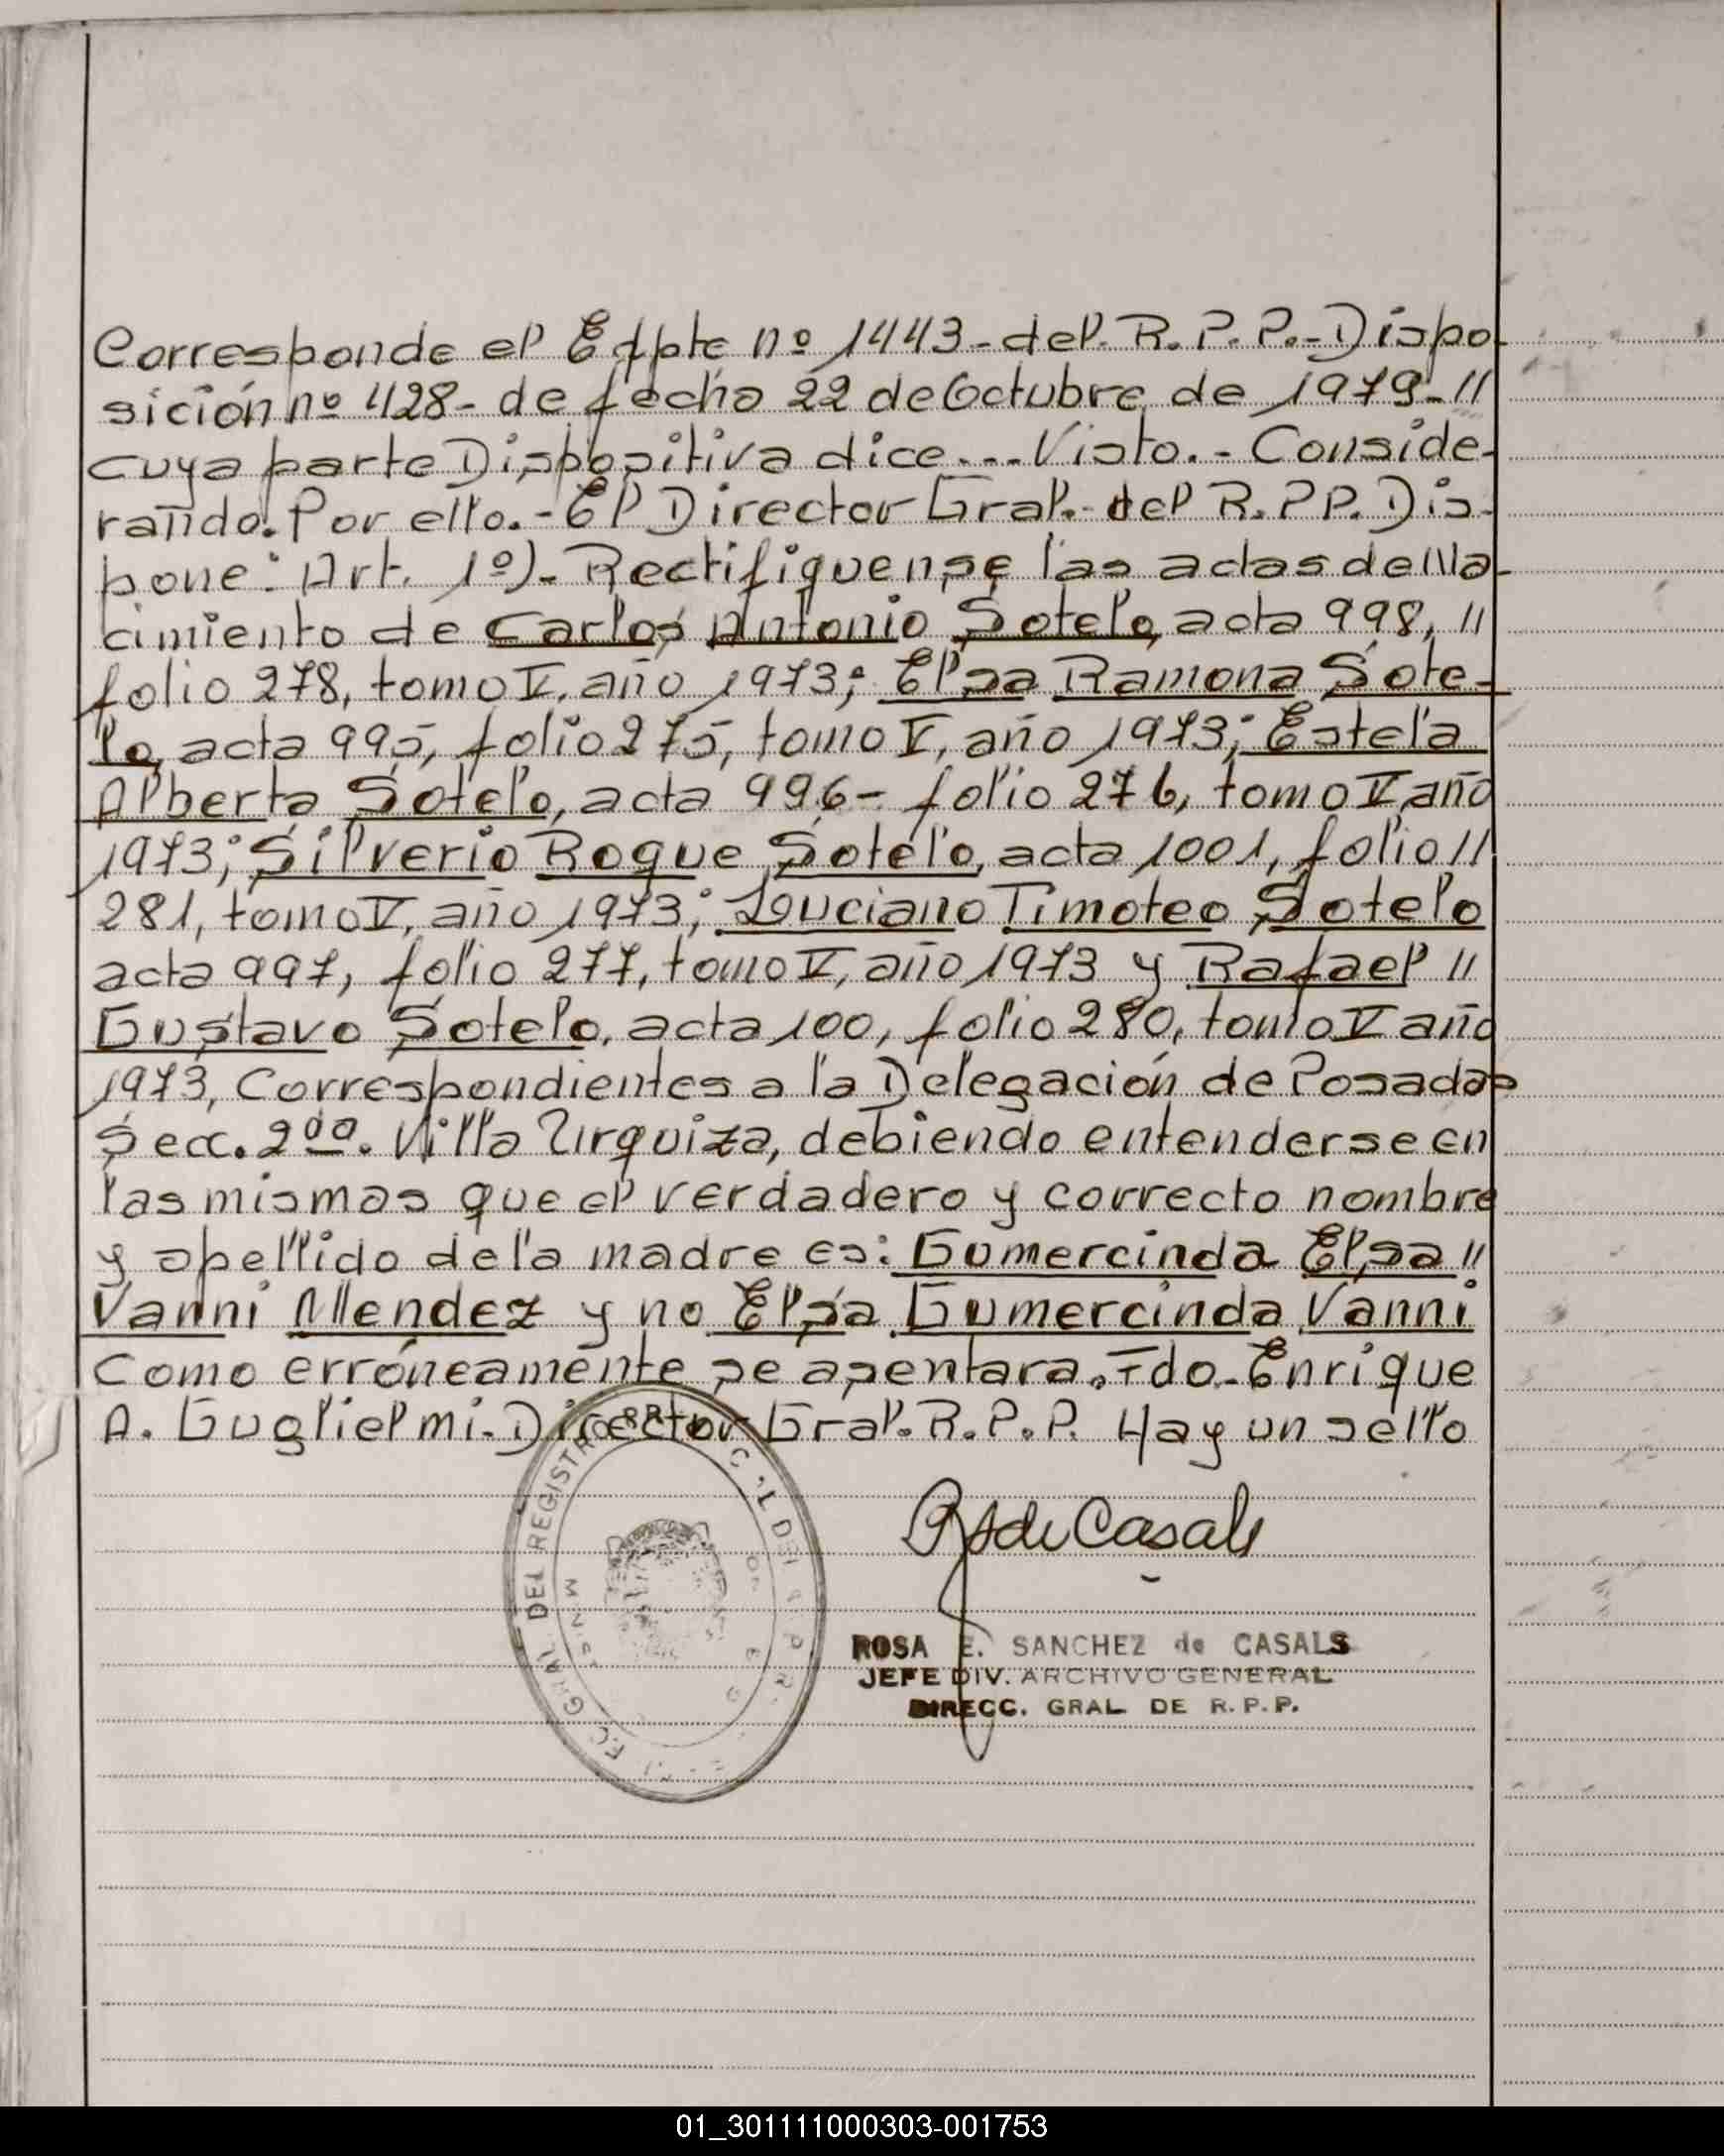 Corresponde el Edpte nº 1443-del. R. P. P.-Dispo-
sición nº 428- de fecha 22 de Octubre de 1979-//
cuya parte Dispositiva dice... Visto.- Conside-
rando. Por ello.- El Director Gral.- del R. P P. Dis-
pone: Art. 1º)- Rectifiquense las actas de Na-
cimiento de Carlos Antonio Sotelo, acta 998, //
folio 278, tomo V, año 1973; Elsa Ramona Sote-
lo, acta 995, folio 275, tomo V, año 1973; Estela
Alberta Sotelo, acta 996- folio 276, tomo V, año
1973; Silverio Roque Sotelo, acta 1001, folio //
281, tomo V, año 1973; Luciano Timoteo Sotelo
acta 997, folio 277, tomo V, año 1973 y Rafael //
Gustavo Sotelo, acta 100, folio 280, tomo V año
1973, Correspondientes a la Delegación de Posadas
Secc. 2da. Villa Urquiza, debiendo entenderse en
las mismas que el verdadero y correcto nombre
y apellido de la madre es: Gumercinda Elsa //
Vanni Mendez y no Elsa Gumercinda Vanni
Como erróneamente se asentara. Fdo- Enrique
A. Guglielmi- Director Gral. R. P. P. Hay un sello
DEL REGISTRO
RS de Casals
ROSA E. SANCHEZ de CASALS
JEFE DIV. ARCHIVO GENERAL
DIRECC. GRAL DE R. P. P.
01_301111000303-001753